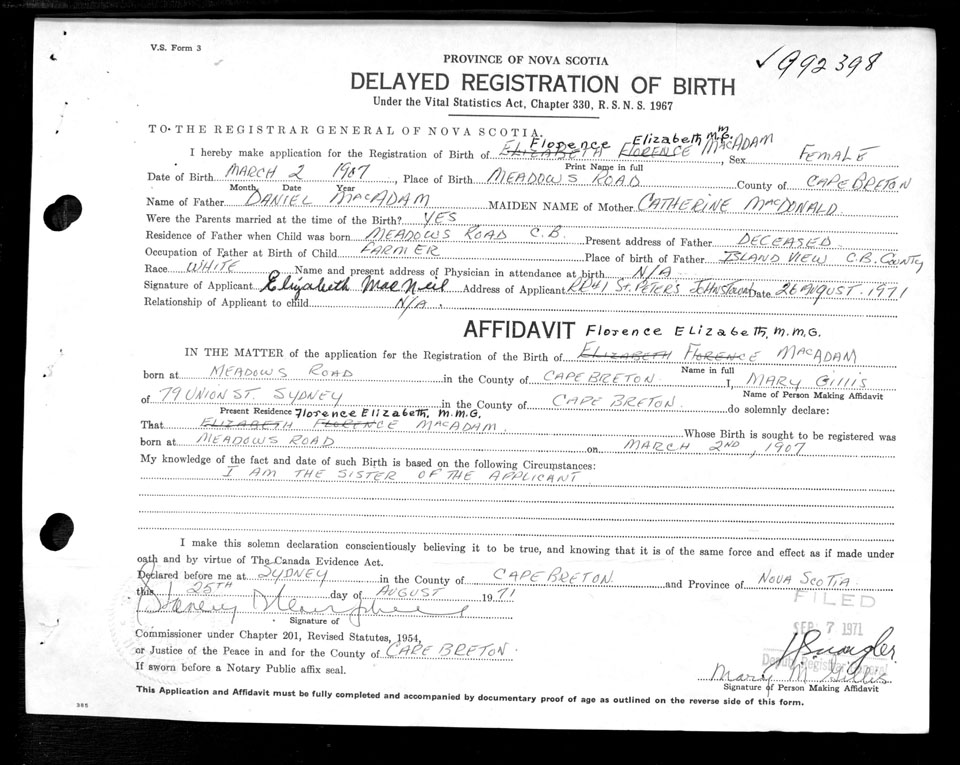 V.S. Form 3
✓992398
PROVINCE OF NOVA SCOTIA
DELAYED REGISTRATION OF BIRTH
Under the Vital Statistics Act, Chapter 330, R.S.N.S. 1967
TO THE REGISTRAR GENERAL OF NOVA SCOTIA.
Florence Elizabeth M.M.
I hereby make application for the Registration of Birth of ELIZABETH FLORENCE MACADAM, Sex FEMALE
Print Name in full
Date of Birth MARCH 2 1907, Place of Birth MEADOWS ROAD County of CAPE BRETON
Month Date Year
Name of Father DANIEL MACADAM MAIDEN NAME of Mother CATHERINE MACDONALD
Were the Parents married at the time of the Birth? YES
Residence of Father when Child was born MEADOWS ROAD C.B. Present address of Father DECEASED
Occupation of Father at Birth of Child FARMER Place of birth of Father ISLAND VIEW C.B. COUNTY
Race WHITE Name and present address of Physician in attendance at birth N/A
Signature of Applicant Elizabeth MacNeil Address of Applicant RR#1 ST. PETERS JOHNSTOWN Date 26 AUGUST 1971
Relationship of Applicant to child N/A
AFFIDAVIT Florence Elizabeth, M.M.G.
IN THE MATTER of the application for the Registration of Birth of ELIZABETH FLORENCE MACADAM
Name in full
born at MEADOWS ROAD in the County of CAPE BRETON I, MARY GILLIS
Name of Person Making Affidavit
of 79 UNION ST. SYDNEY in the County of CAPE BRETON do solemnly declare:
Present Residence Florence Elizabeth, M.M.G.
That ELIZABETH FLORENCE MACADAM Whose Birth is sought to be registered was
born at MEADOWS ROAD on MARCH 2ND, 1907
My knowledge of the fact and date of such Birth is based on the following Circumstances:
I AM THE SISTER OF THE APPLICANT
I make this solemn declaration conscientiously believing it to be true, and knowing that it is of the same force and effect as if made under
oath and by virtue of The Canada Evidence Act.
Declared before me at SYDNEY in the County of CAPE BRETON and Province of NOVA SCOTIA
this 25TH day of AUGUST 1971
FILED
SEP 7 1971
Signature of
Commissioner under Chapter 201, Revised Statutes, 1954,
or Justice of the Peace in and for the County of CAPE BRETON
If sworn before a Notary Public affix seal.
Deputy Registrar General
Mary M Gillis
Signature of Person Making Affidavit
This Application and Affidavit must be fully completed and accompanied by documentary proof of age as outlined on the reverse side of this form.
385